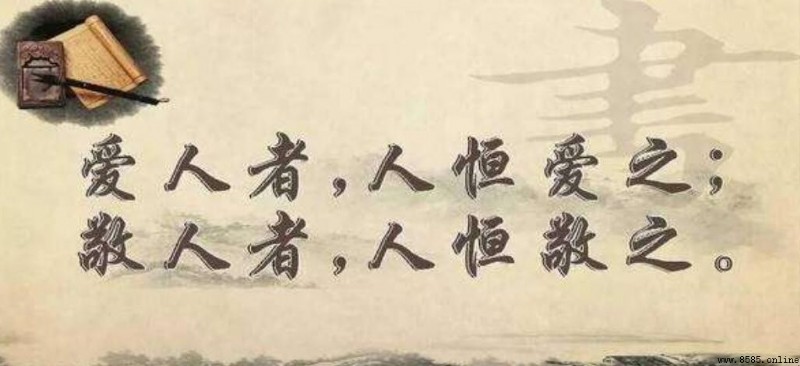 書
爱人者,人恒爱之;
敬人者,人恒敬之。
www.8585.online